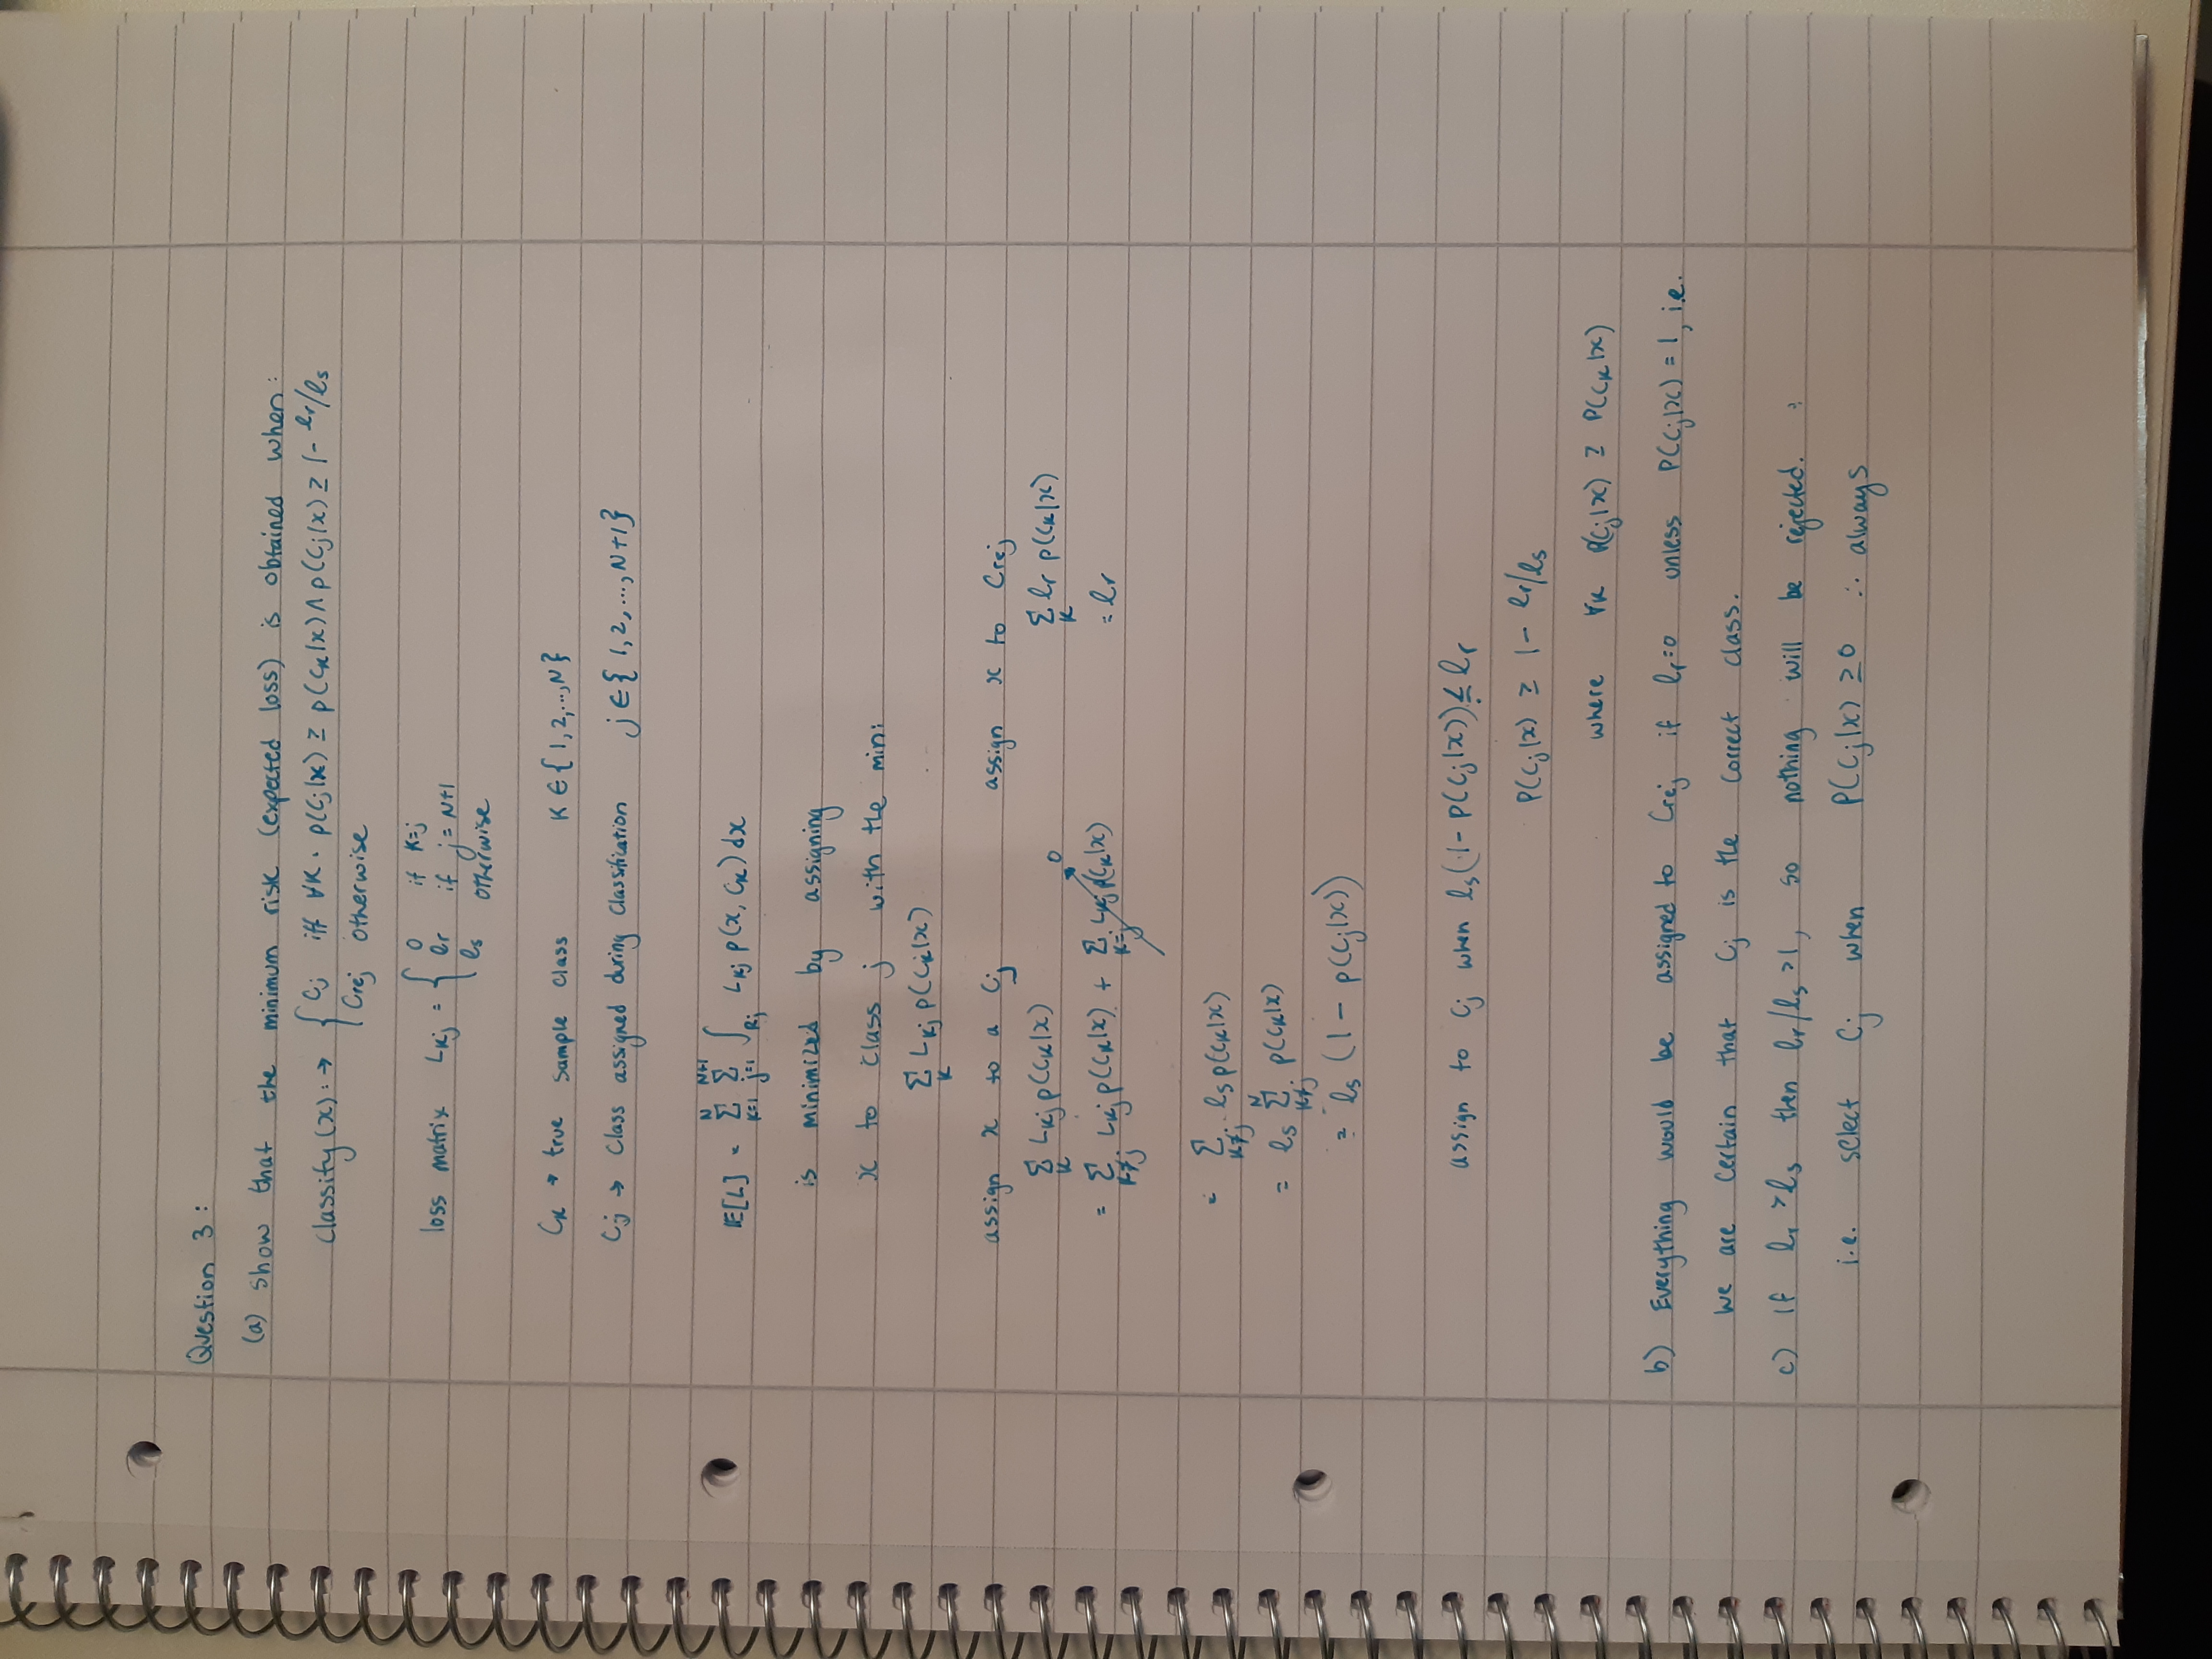 Question 3 :
(a) show that the minimum risk (expected loss) is obtained when :
Classify (x) : → { Cj iff ∀K . p(Cj|x) ≥ p(CK|x) ∧ p(Cj|x) ≥ 1 - lr/ls
Crej otherwise
loss matrix LKj = { 0 if K=j
lr if j = N+1
ls otherwise
CK → true sample class K ∈ { 1, 2, ..., N }
Cj → Class assigned during Classification j ∈ { 1, 2, ..., N+1 }
𝔼[L] = Σ_{K=1}^{N} Σ_{j=1}^{N+1} ∫_{Rj} LKj p(x, CK) dx
is minimized by assigning
x to class j with the min:
Σ_K LKj p(CK|x)
assign x to a Cj assign x to Crej
Σ_K LKj p(CK|x) Σ_K lr p(CK|x)
= Σ_{K≠j} LKj p(CK|x) + Σ_{K=j} LKj p(CK|x) → 0 = lr
= Σ_{K≠j} ls p(CK|x)
= ls Σ_{K≠j}^{N} p(CK|x)
= ls (1 - p(Cj|x))
assign to Cj when ls(1 - P(Cj|x)) ≤ lr
P(Cj|x) ≥ 1 - lr/ls
where ∀K P(Cj|x) ≥ P(CK|x)
b) Everything would be assigned to Crej if lr=0 unless P(Cj|x) = 1, i.e.
we are certain that Cj is the correct class.
c) If lr > ls then lr/ls > 1, so nothing will be rejected.
i.e. select Cj when P(Cj|x) ≥ 0 ∴ always